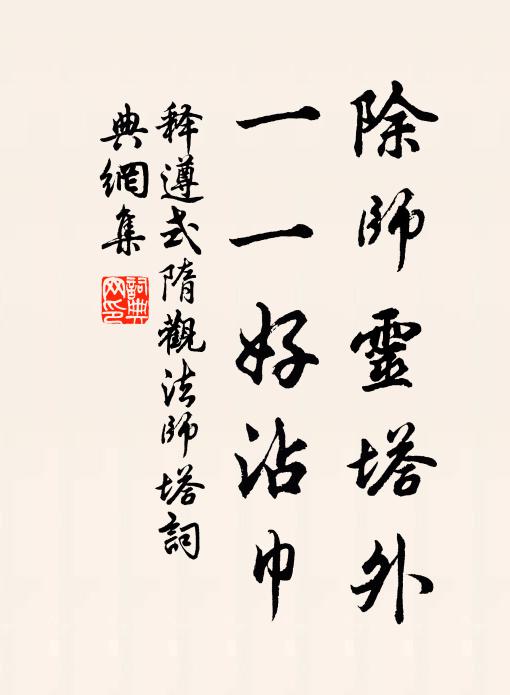 除師靈塔外
一一好沾巾
释遵式隋觀法師塔詞
典網集
詞典
网印